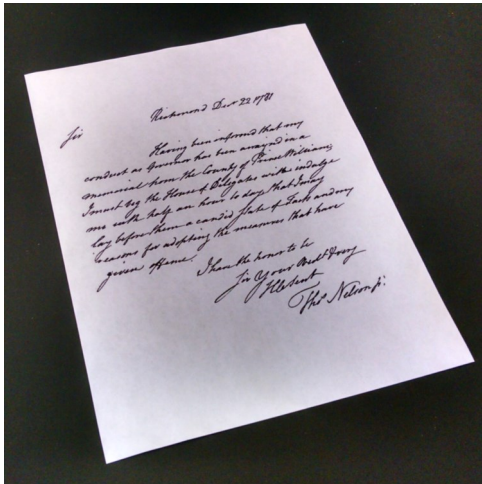 Richmond Decr 22 1781
Sir
Having been informed that my
conduct as Governor has been arraign'd in a
memorial from the County of Prince William,
I must beg the House of Delegates will indulge
me with half an hour to day, that I may
lay before them a candid State of Facts and my
reasons for adopting the measures that have
given offence.
I have the honor to be
Sir Your Obedt & very
Hble Servt
Thos Nelson Jr.